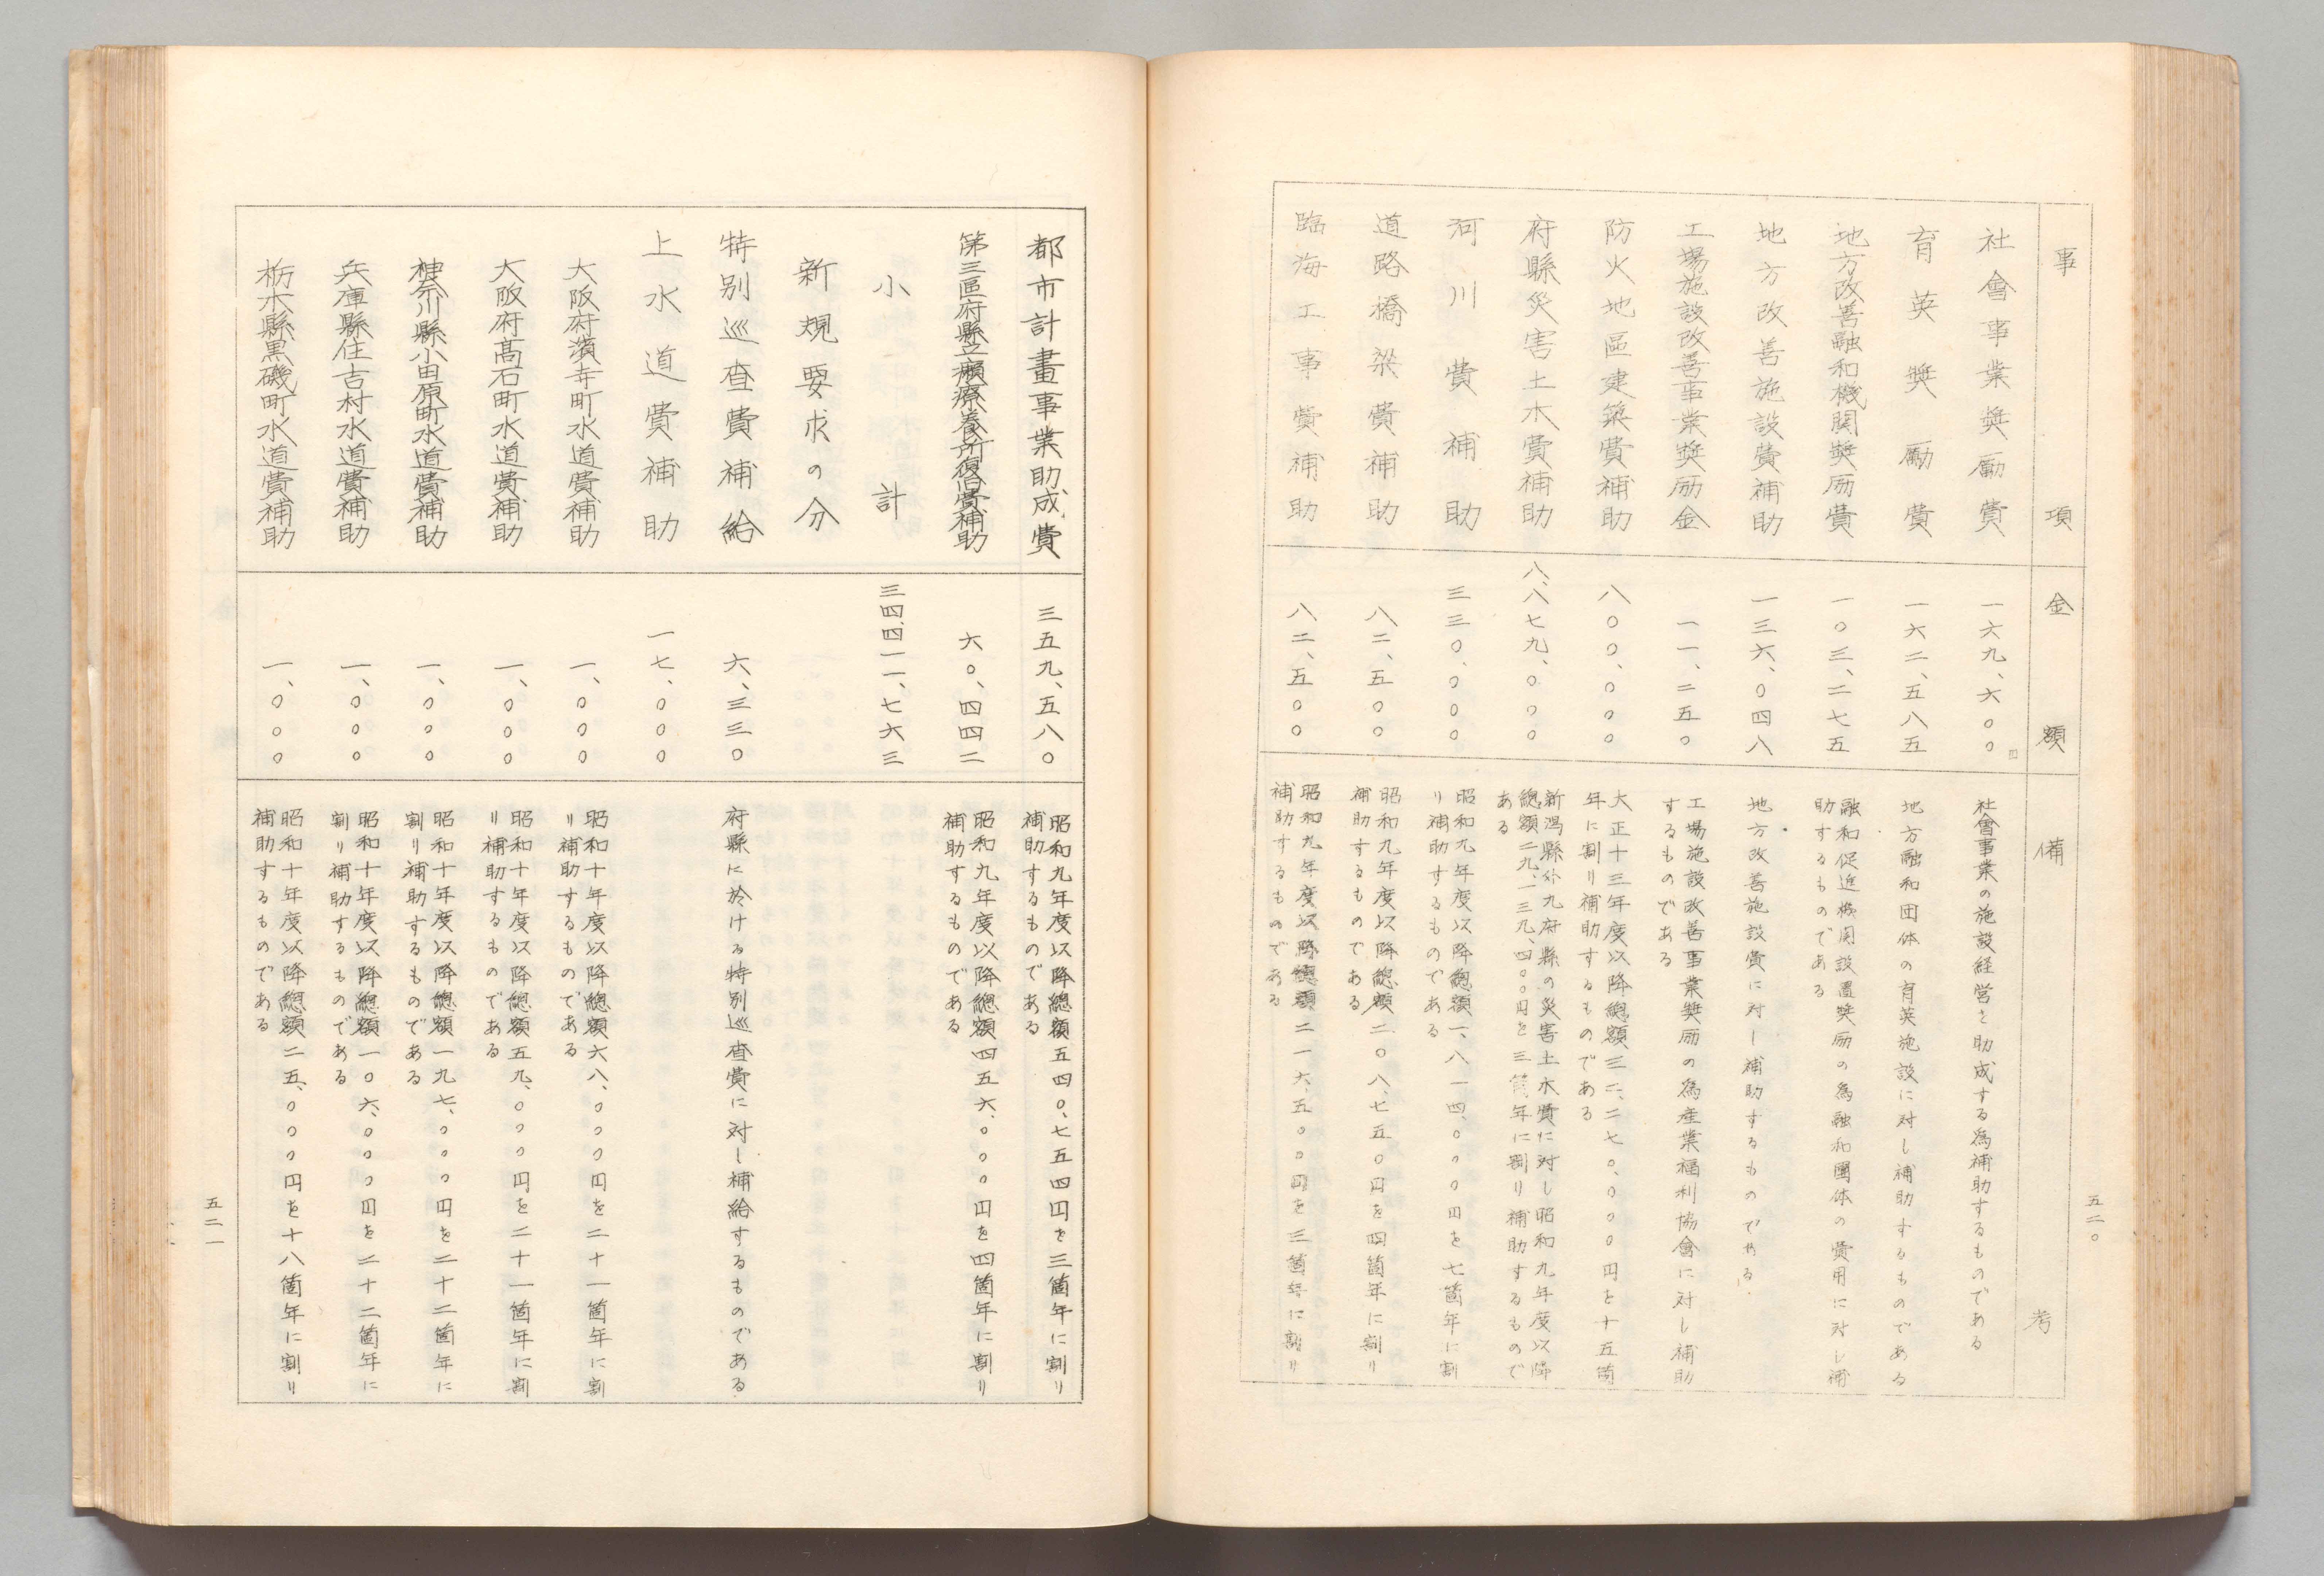 五二〇
事項
金額
備考
社會事業奬勵費
一六九、六〇〇
円
社會事業の施設経営を助成する為補助するものである
育英奬勵費
一六二、五八五
地方融和団体の育英施設に対し補助するものである
地方改善融和機関奬励費
一〇三、二七五
融和促進機関設置奬励の為融和團体の費用に対し補
助するものである
地方改善施設費補助
一三六、〇四八
地方改善施設費に対し補助するものである
工場施設改善事業奬励金
一一、二五〇
工場施設改善事業奬励の為産業福利協會に対し補助
するものである
防火地區建築費補助
八〇〇、〇〇〇
大正十三年度以降總額三二、二七〇、〇〇〇円を十五箇
年に割リ補助するものである
府縣災害土木費補助
八、八七九、〇〇〇
新潟縣外九府縣の災害土木費に対し昭和九年度以降
總額二九、一三九、四〇〇円を三箇年に割リ補助するもので
ある
河川費補助
三三〇、〇〇〇
昭和九年度以降總額一、八一四、〇〇〇円を七箇年に割
リ補助するものである
道路橋梁費補助
八二、五〇〇
昭和九年度以降總額二〇八、七五〇円を四箇年に割リ
補助するものである
臨海工事費補助
八二、五〇〇
昭和九年度以降總額二一六、五〇〇円を三箇年に割リ
補助するものである
都市計畫事業助成費
三五九、五八〇
昭和九年度以降總額五四〇、七五四円を三箇年に割リ
補助するものである
第三區府縣立癩療養所復旧費補助
六〇、四四二
昭和九年度以降總額四五六、〇〇〇円を四箇年に割リ
補助するものである
小計
三四、四一一、七六三
新規要求の分
特別巡査費補給
六、三三〇
府縣に於ける特別巡査費に対し補給するものである
上水道費補助
一七、〇〇〇
大阪府濱寺町水道費補助
一、〇〇〇
昭和十年度以降總額六八、〇〇〇円を二十一箇年に割
リ補助するものである
大阪府高石町水道費補助
一、〇〇〇
昭和十年度以降總額五九、〇〇〇円を二十一箇年に割
リ補助するものである
神奈川縣小田原町水道費補助
一、〇〇〇
昭和十年度以降總額一九七、〇〇〇円を二十二箇年に
割リ補助するものである
兵庫縣住吉村水道費補助
一、〇〇〇
昭和十年度以降總額一〇六、〇〇〇円を二十二箇年に
割リ補助するものである
栃木縣黒磯町水道費補助
一、〇〇〇
昭和十年度以降總額二五、〇〇〇円を十八箇年に割リ
補助するものである
五二一